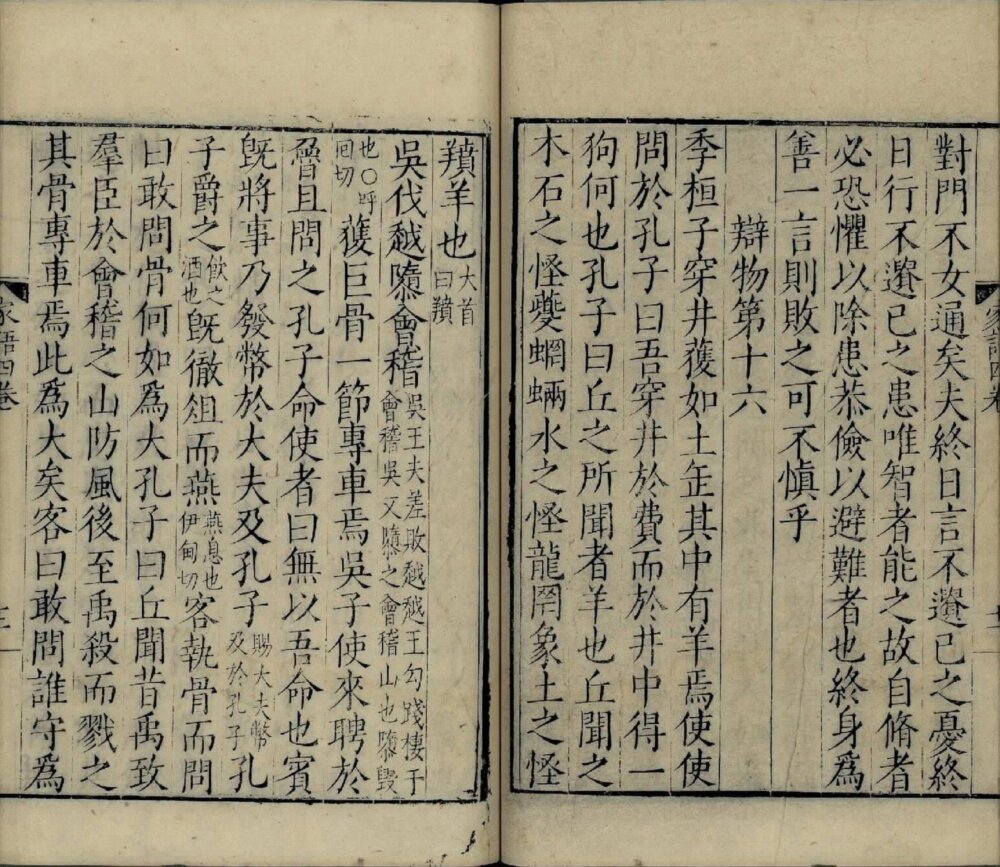 對門不女通矣夫終日言不遺己之憂終
日行不遺己之患唯智者能之故自脩者
必恐懼以除患恭儉以避難者也終身爲
善一言則敗之可不慎乎
辯物第十六
季桓子穿井獲如土缶其中有羊焉使使
問於孔子曰吾穿井於費而於井中得一
狗何也孔子曰丘之所聞者羊也丘聞之
木石之怪夔蝄蜽水之怪龍罔象土之怪
羵羊也大首曰羵
吳伐越隳會稽吳王夫差敗越越王勾踐棲于會稽吳又隳之會稽山也隳毀
也○呼回切獲巨骨一節專車焉吳子使來聘於
魯且問之孔子命使者曰無以吾命也賓
旣將事乃發幣於大夫及孔子賜大夫幣及於孔子孔
子爵之飲之酒也旣徹俎而燕燕息也伊甸切客執骨而問
曰敢問骨何如爲大孔子曰丘聞昔禹致
羣臣於會稽之山防風後至禹殺而戮之
其骨專車焉此爲大矣客曰敢問誰守爲
家語四卷